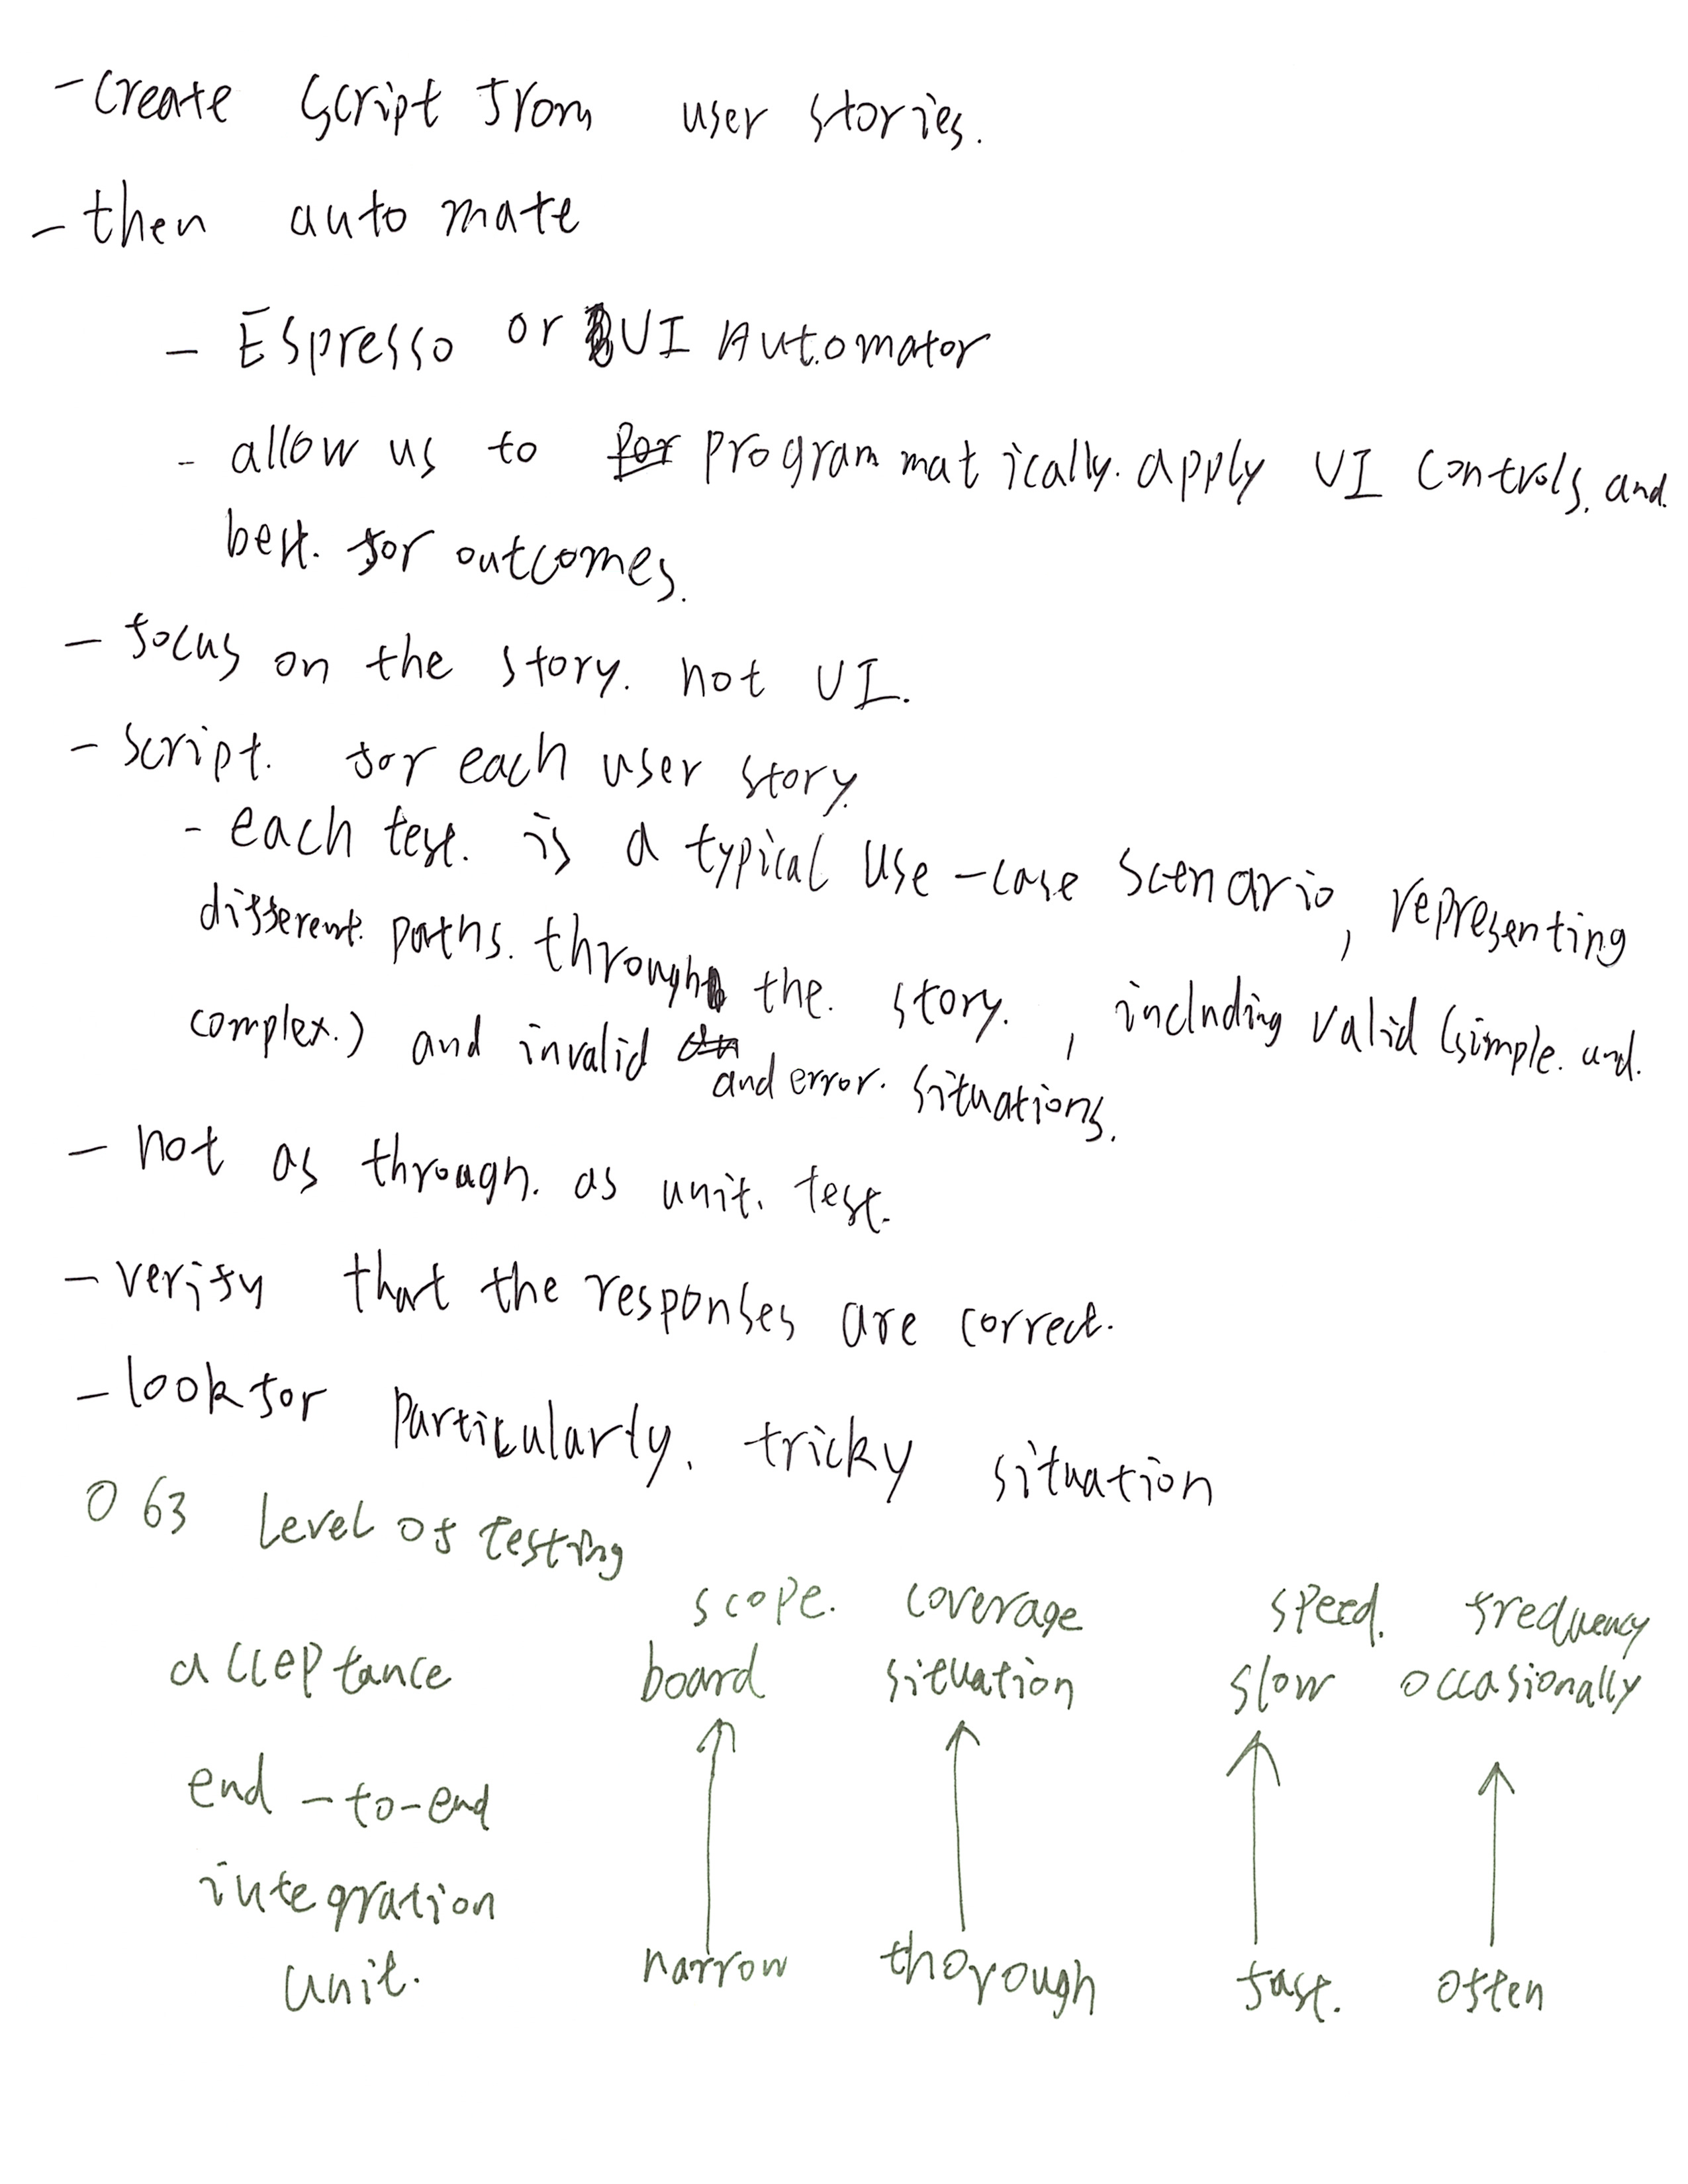 - create script from user stories.
- then automate
- Espresso or UI Automator
- allow us to programmatically. apply UI controls. and.
for outcomes.
- focus on the story. not UI.
- script. for each user story.
- each test. is a typical use-case scenario, representing
different. paths. through the. story. , including valid (simple. and.
complex.) and invalid and error. situations.
- not as through. as unit. test.
- verify that the responses are correct.
- look for particularly. tricky situation
○ 63 Level of testing
scope. coverage speed. frequency
acceptance board situation slow occasionally
end-to-end
integration
unit. narrow thorough fast. often